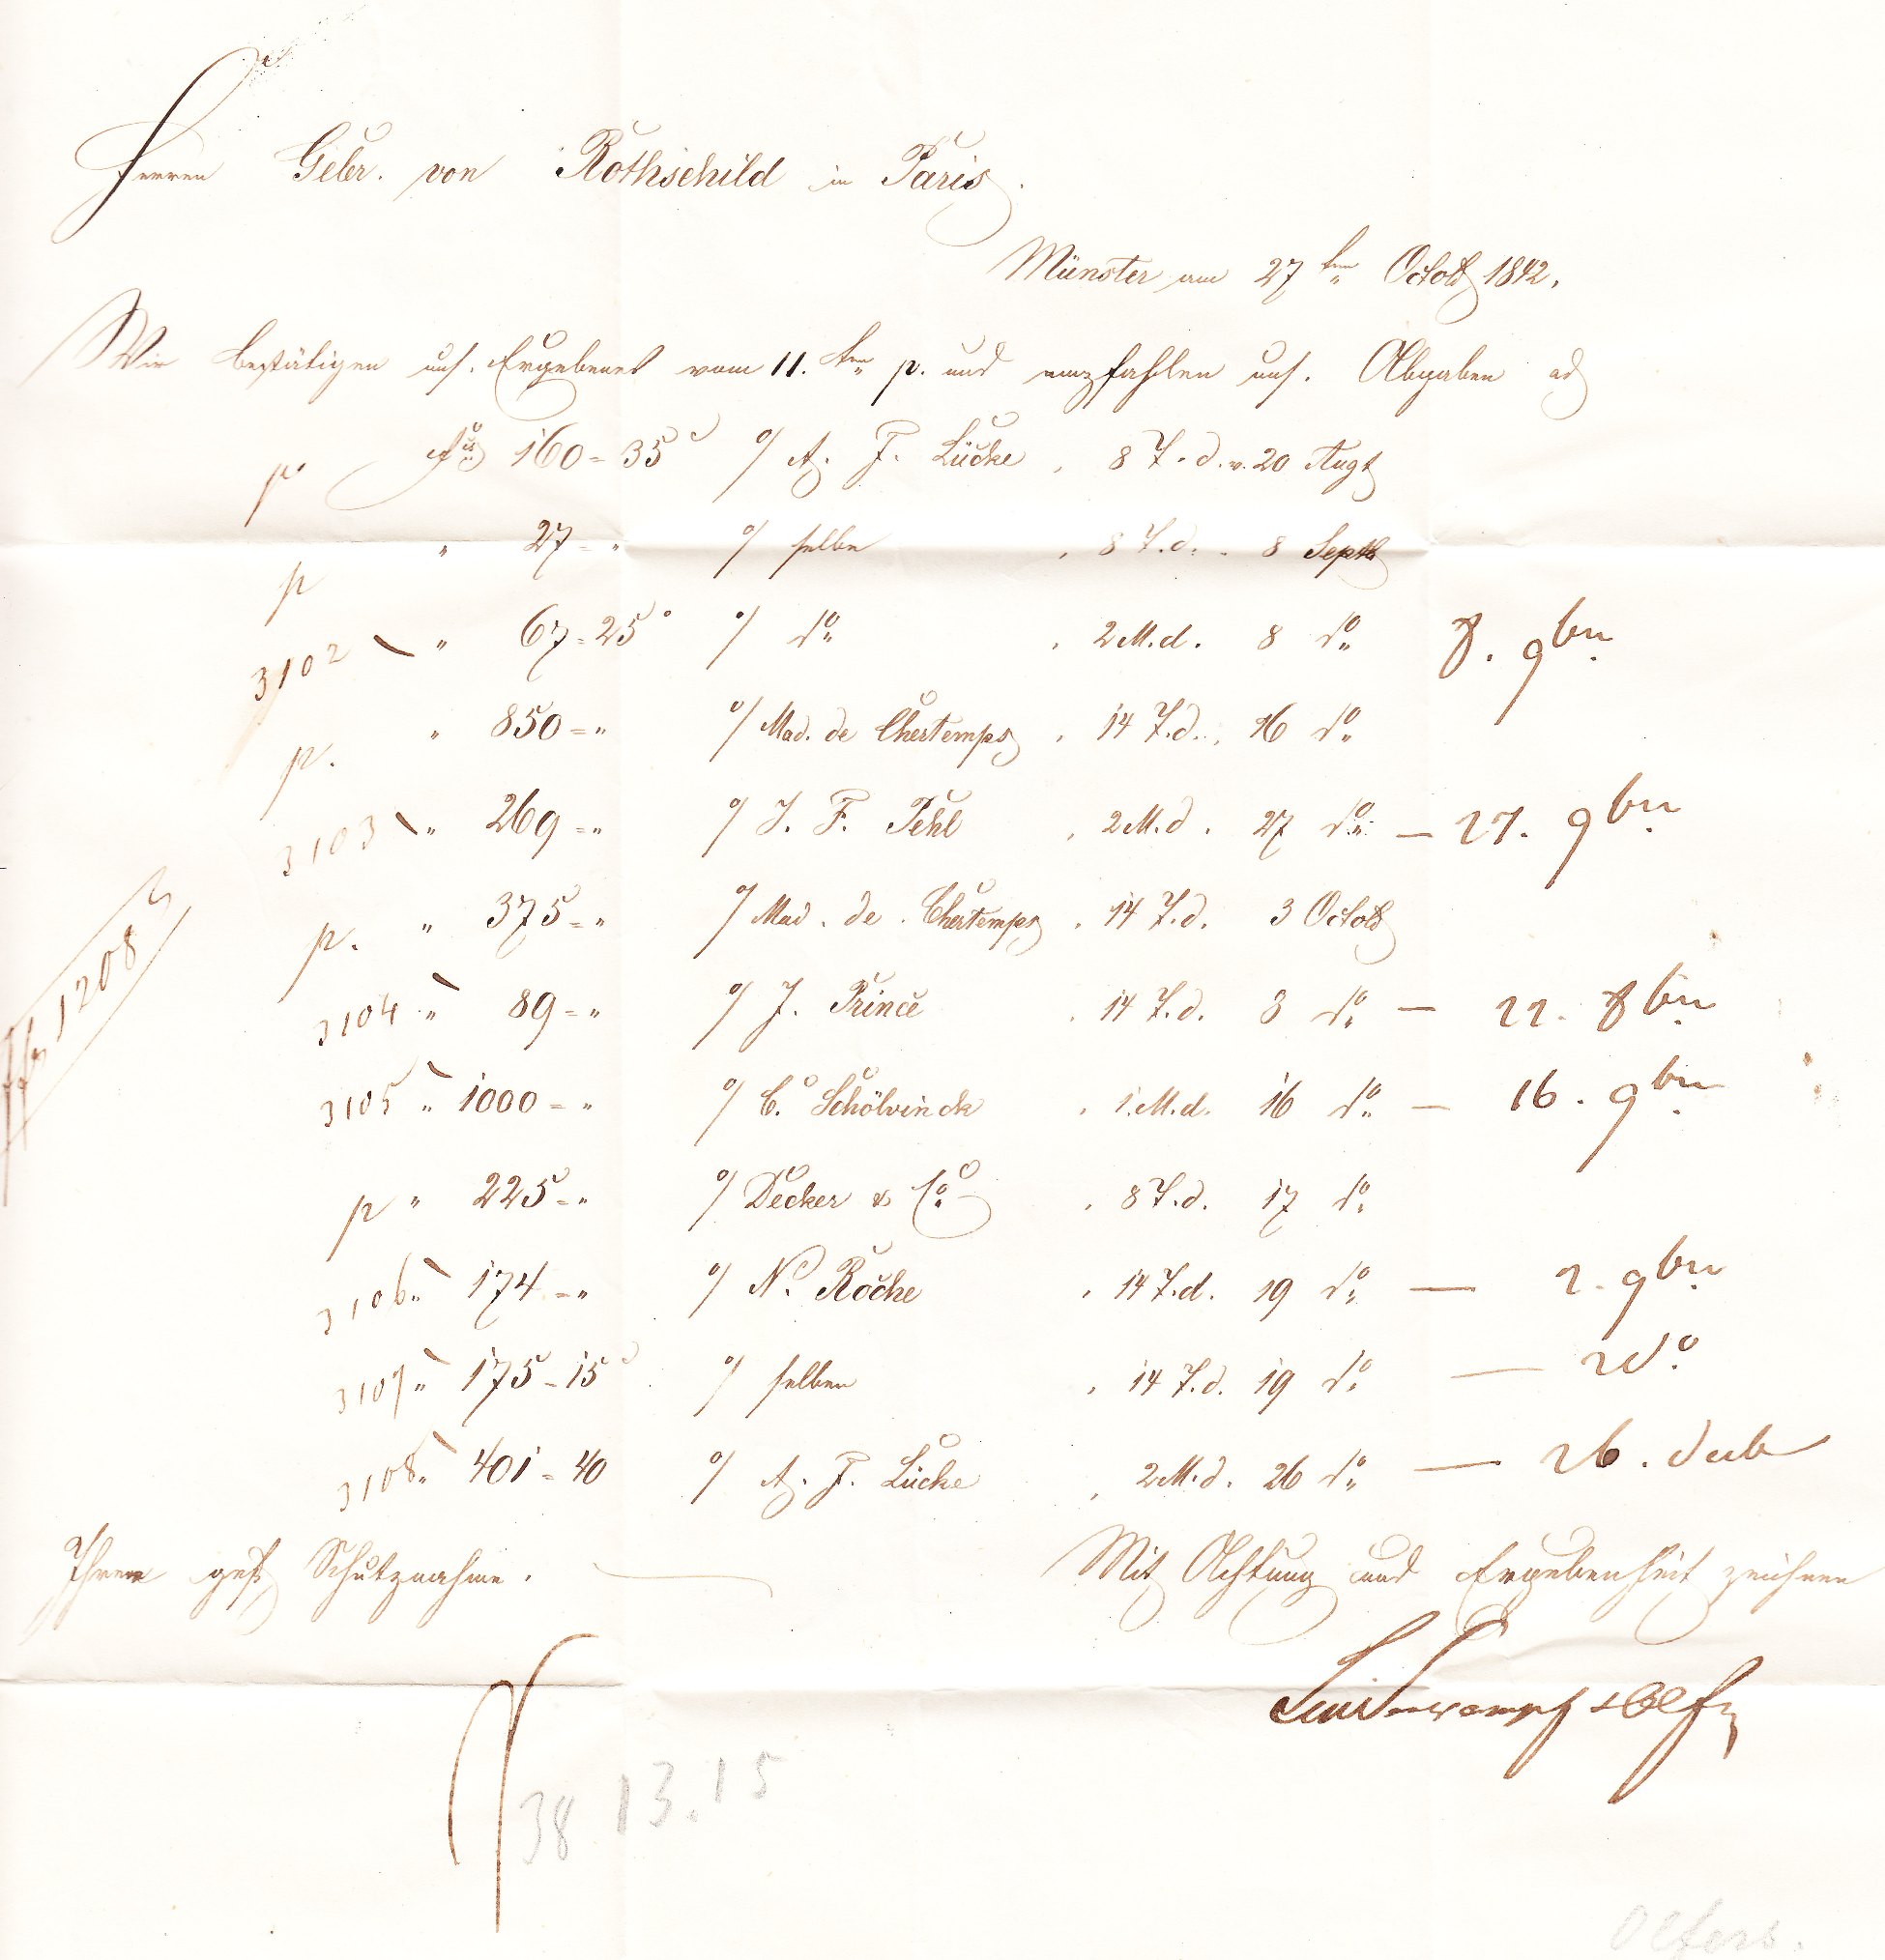 Herren Gebr. von Rothschild in Paris.
Münster am 27ten Octob 1842.
Wir bestätigen uns. Ergebenes vom 11.ten p. und empfahlen uns. Abgaben ad
p fcs 160 = 35 c o/ A. F. Lücke, 8 T. d. v. 20 Augt
p " 27 = " o/ selbe, 8 T. d. " 8 Septb
3102 " 67 = 25 c o/ do, 2 M. d. 8 do 8. 9ber
p. " 850 = " o/ Mad. de Chertemps, 14 T. d. 16 do
3103 " 269 = " o/ J. F. Pehl, 2 M. d. 27 do — 27. 9ber
p. " 375 = " o/ Mad. de Chertemps, 14 T. d. 3 Octob
3104 " 89 = " o/ J. Prince, 14 T. d. 8 do — 22. 8ber
3105 " 1000 = " o/ C. Schölvinck, 1 M. d. 16 do — 16. 9ber
p " 225 = " o/ Decker & Co, 8 T. d. 17 do
3106 " 174 = " o/ N. Roche, 14 T. d. 19 do — 2. 9ber
3107 " 175 = 15 c o/ selben, 14 T. d. 19 do — 2 do
3108 " 401 = 40 o/ A. F. Lücke, 2 M. d. 26 do — 26. decb
1208
Ihrem gefl Schutznahme.
Mit Achtung und Ergebenheit zeichnen
Lindenkampf & Olfers
38 13.15
Olfers.